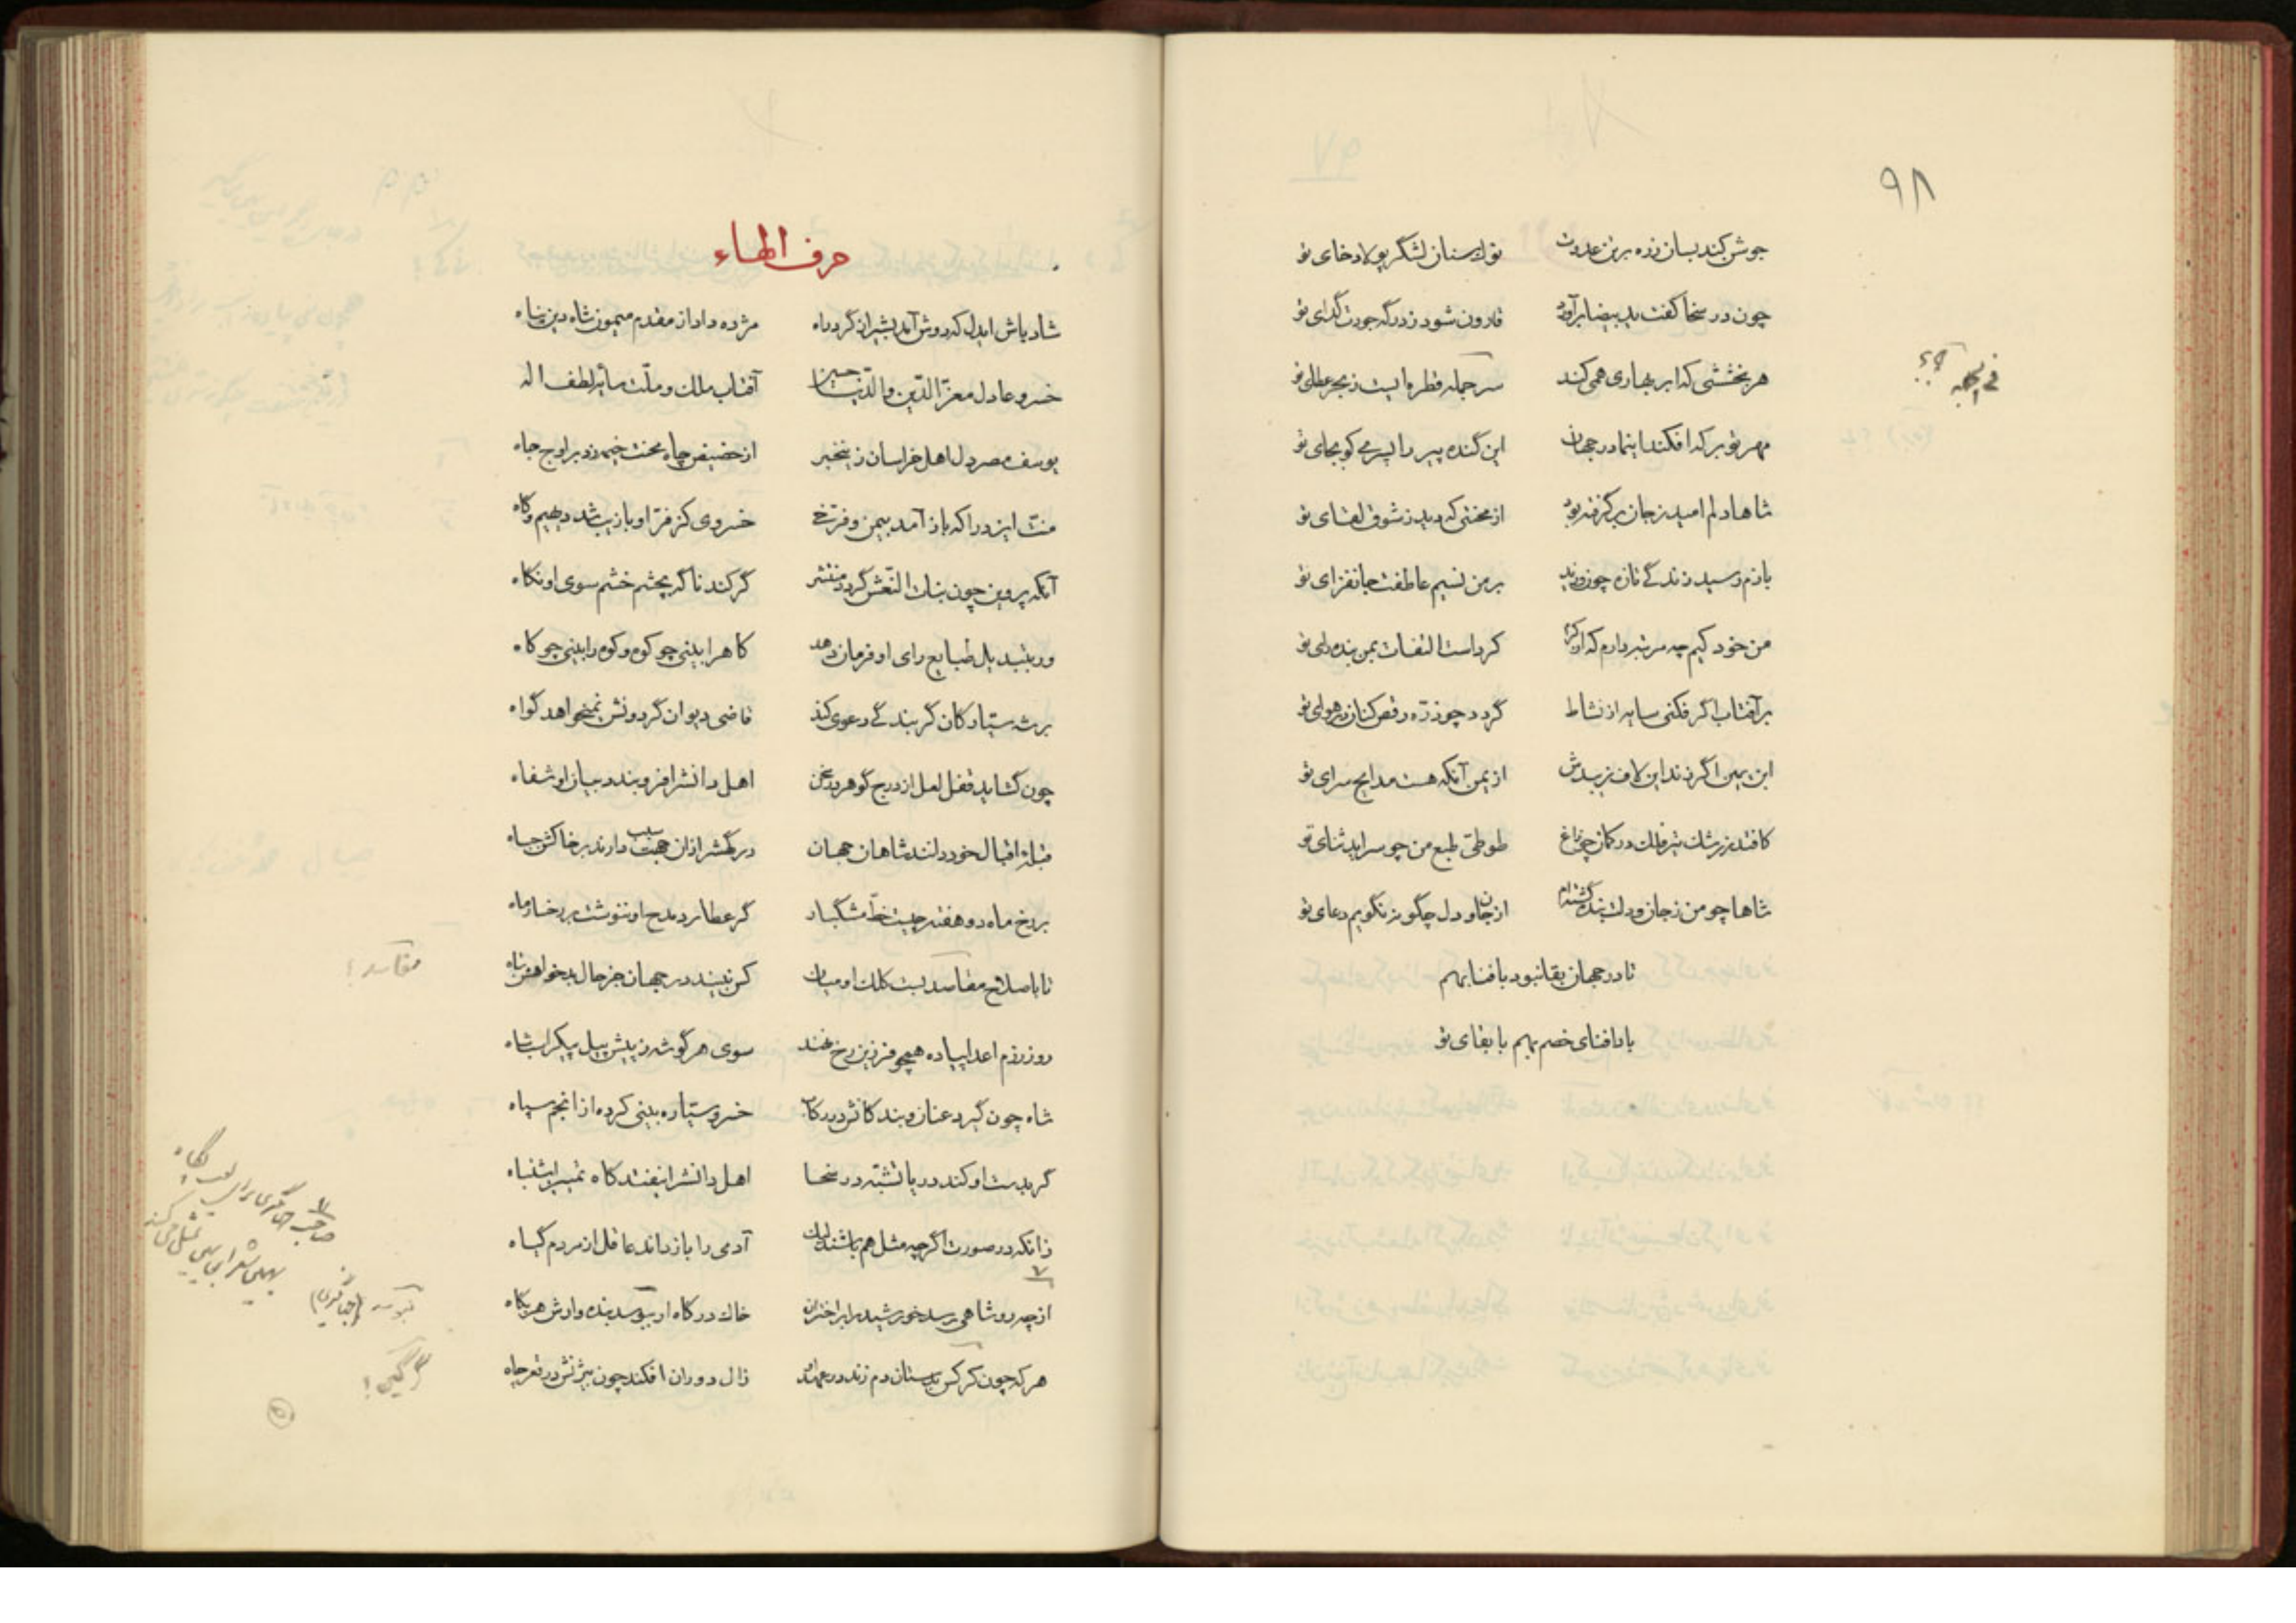 ۹۸
جوشن کند بسان زره بر تن عدوت نوک سنان لشگر پولادخای تو
چون در سخا کفت ید بیضا برآورد قارون شود ز درگه جودت گدای تو
هر بخششی که ابر بهاری همی کند سر جمله قطره ایست ز بحر عطای تو
مهر تو بر که افکند اینما در جهان این گنده پیر را پسری کو بجای تو
شاها دلم امید ز جان برگرفته بود از محنتی که دید ز شوق لقای تو
بازم رسید زندگی تازه چون وزید بر من نسیم عاطفت جانفزای تو
من خود کیم چه مرتبه دارم که از کرم کرد است التفات بمن بنده رای تو
بر آفتاب اگر فکنی سایه از نشاط گردد چو ذره رقص کنان در هوای تو
ابن یمین اگر زند این لاف زیبدش از یمن آنکه هست مدایح سرای تو
کافتد ز رشک تیر فلک در کمان چو زاغ طوطی طبع من چو سراید ثنای تو
شاها چو من ز جان و دلت بنده گشته‌ام از جان و دل چگونه نگویم دعای تو
تا در جهان بقا نبود با فنا بهم
بادا فنای خصم بهم با بقای تو
حرف الهاء
شاد باش ایدل که دوش آمد بشیر از گرد راه مژده داد از مقدم میمون شاه دین پناه
خسرو عادل معز الدین والدنیا حسین آفتاب ملک و ملت سایه لطف اله
یوسف مصر دل اهل خراسان زینخبر از حضیض چاه محنت خیمه زد بر اوج جاه
منت ایزد را که باز آمد بیمن و فرخی خسروی کز فر او با زیب شد دیهیم و گاه
آنکه پروین چون بنات النعش گردد منتشر گر کند ناگه بچشم خشم سوی او نگاه
ور بتبدیل طبایع رای او فرمان دهد کاه را بینی چو کوه و کوه را بینی چو کاه
بر شه سیارگان گر بندگی دعوی کند قاضی دیوان گردونش نمیخواهد گواه
چون گشاید قفل لعل از درج گوهر در سخن اهل دانش را فرو بندد بیان او شفاه
قبله اقبال خود دانند شاهان جهان درگهش را زان سبب دارند بر خاکش جباه
بر رخ ماه دو هفته چیست خط مشگبار گر عطارد مدح او ننوشت بر رخسار ماه
تا باصلاح مفاسد بست کلک او میان کس نبیند در جهان جز حال بدخواهش تباه
روز رزم اعدا پیاده همچو فرزین رخ نهند سوی هر گوشه ز پیش پیل پیکر اسب شاه
شاه چون گیرد عنان و بند کانش در رکاب خسرو سیاره بینی کرده از انجم سپاه
گر بدست او کند دریا تشبه در سخا اهل دانش را نیفتد گاه تمییز اشتباه
زانکه در صورت اگر چه مثل هم باشند لیک آدمی را باز داند عاقل از مردم گیاه
از چه رو شاهی رسد خورشید را بر اختران خاک درگاه ار نبوسد بنده وارش هر پگاه
هر که چون کرکس بدستان دم زند در عهد او زال دوران افکند چون بیژنش در قعر چاه